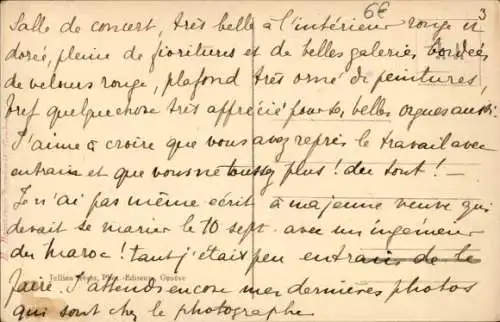 6€ 3
Salle de concert, très belle à l'intérieur rouge et
dorée, pleine de fioritures et de belles galeries bordées
de velours rouge, plafond très orné de peintures,
bref quelque chose très apprécié, belles orgues aussi.
J'aime à croire que vous avez repris le travail avec
entrain et que vous ne toussez plus! du tout! —
Je n'ai pas même écrit à ma jeune veuve qui
devait se marier le 10 sept. avec un ingénieur
du Maroc! tant j'étais peu en train de le
Jullien frères, Phot. Editeurs, Genève
faire. J'attends encore mes dernières photos
qui sont chez le photographe